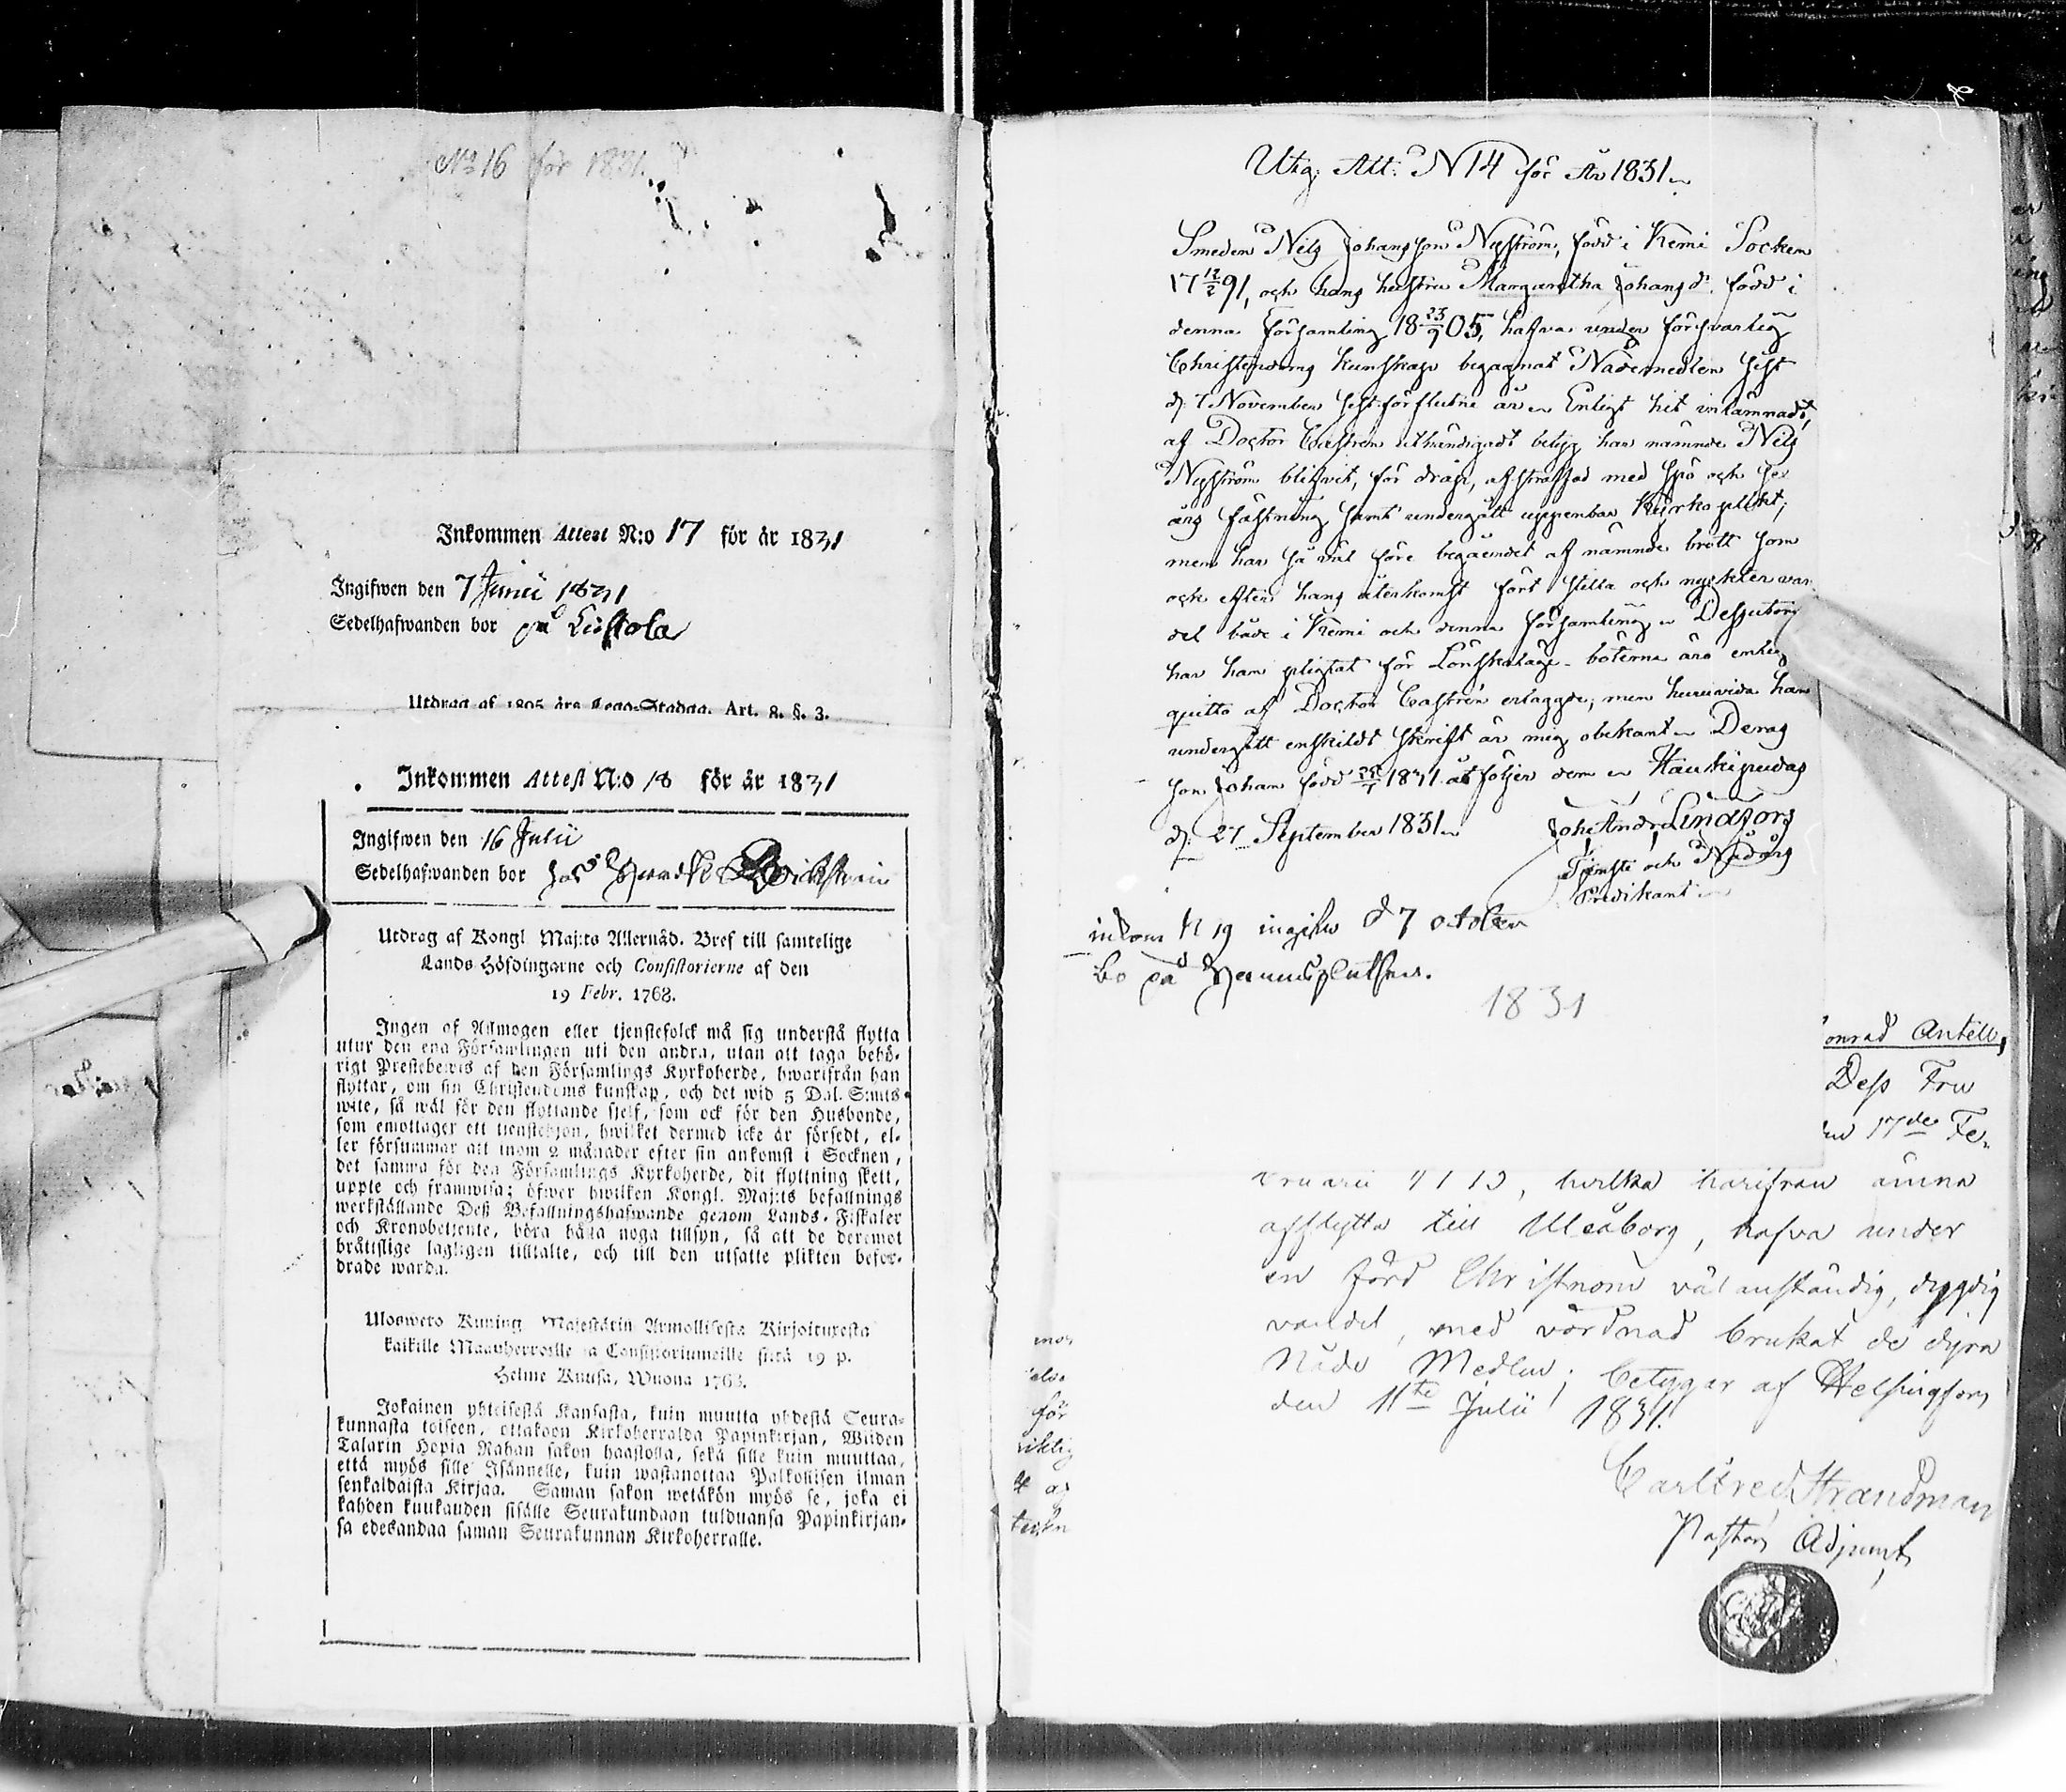 No 16 för 1831.
Inkommen Attest N:o 17 för år 1831
Ingifwen den 7 Junii 1831
Sedelhafwanden bor på
Utdrag af 1805 års Lego-Stadga. Art. 8. §. 3.
Inkommen Attest N:o 18 för år 1831
Ingifwen den 16 Julii
Sedelhafwanden bor hos
Utdrag af Kongl. Maj:ts Allernåd. Bref till samtelige
Lands Höfdingarne och Consistorierne af den
19 Febr. 1768.
Ingen af Allmogen eller tjenstefolck må sig understå flytta
utur den ena Församlingen uti den andra, utan att taga behö-
rigt Prestebewis af den Församlings Kyrkoherde, hwarifrån han
flyttar, om sin Christendoms kunskap, och det wid 5 Dal. S:mts
wite, så wäl för den flyttande sjelf, som ock för den Husbonde,
som emottager ett tienstehjon, hwilket dermed icke är försedt, el-
ler försummar att inom 2 månader efter sin ankomst i Socknen,
det samma för den Församlings Kyrkoherde, dit flyttning skett,
uppte och framwisa; öfwer hwilken Kongl. Maj:ts befallnings
werkställande Deß Befallningshafwande genom Lands-Fiskaler
och Kronobetjente, böra hålla noga tillsyn, så att de deremot
bråttslige lagligen tilltalte, och till den utsatte plikten befor-
drade warda.
Uloswero Kuning Majestärin Armollisesta Kirjoituxesta
kaikille Maanherroille ja Consistoriumeille siitä 19 p.
Helme Kuusa, Wuona 1768.
Jokainen yhteisestä Kansasta, kuin muutta yhdestä Seura-
kunnasta toiseen, ottakoon Kirkoherralda Papinkirjan, Wiiden
Talarin Hopia Rahan sakon haastolla, sekä sille kuin muuttaa,
että myös sille Isännelle, kuin wastanottaa Palkollisen ilman
senkaldaista Kirjaa. Saman sakon wetäkön myös se, joka ei
kahden kuukauden sisälle Seurakundaan tulduansa Papinkirjan-
sa edesandaa saman Seurakunnan Kirkoherralle.
Utg. Att: N 14 för År 1831
Smeden Nils Johansson Nyström, född i Kemi Socken
17 12/2 91, och hans hustru Margaretha Johansd. född i
denna församling 18 23/9 05, hafva under försvarlig
Christendoms kunskap begagnat Nådemedlen sist
d. 7 November sistförflutne år Enligt hit inlämnadt,
af Doctor Castrén uthändigadt betyg har nämnde Nils
Nyström blifvit, för dråp, afstraffad med spö och sex
års fästning samt undergått uppenbar Kyrkoplikt;
men har så väl före begåendet af nämnde brott som
och efter hans återkomst fört stilla och nykter van
del både i Kemi och denna församling Dessutom
har han pligtat för Lönskaläge - böterna äro enligt
quitto af Doctor Castrén erlagde; men huruvida han
undergått enskildt skrift är mig obekant Deras
son Johan född 1831 åtföljer dem Haukipudas
d. 27 September 1831
Joh: Andr: Lindfors
Tjenste och Nådårs
Predikant
inkom N 19 ingifw d 7 october
bo på
1831
onrad Antell,
Dess Fru
en 17de Fe-
bruarii, hvilka härifrån ämna
afflytta till Uleåborg, hafva under
en förd Christnom väl anständig, dygdig
vandel, med vördnad brukat de dyra
Nåde Medlen; betygar af Helsingfors
den 11te Julii 1831.
Carl Fred Strandman
Pastors Adjunct
för